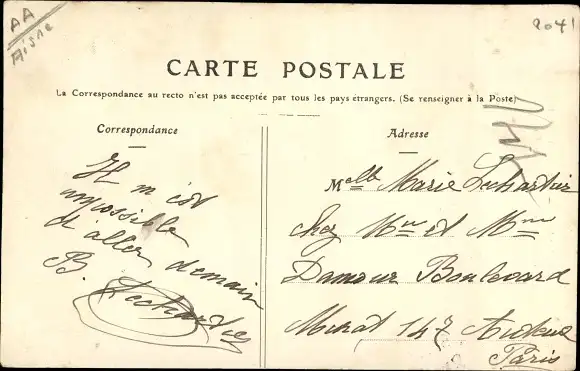 AA
Aisne
2041
CARTE POSTALE
La Correspondance au recto n'est pas acceptée par tous les pays étrangers. (Se renseigner à la Poste)
Correspondance
Il m'est
impossible
d'aller demain
B. Lechartier
Adresse
Melle Marie Lechartier
chez Mr et Mme
Damour Boulevard
Murat 147 Auteuil
Paris